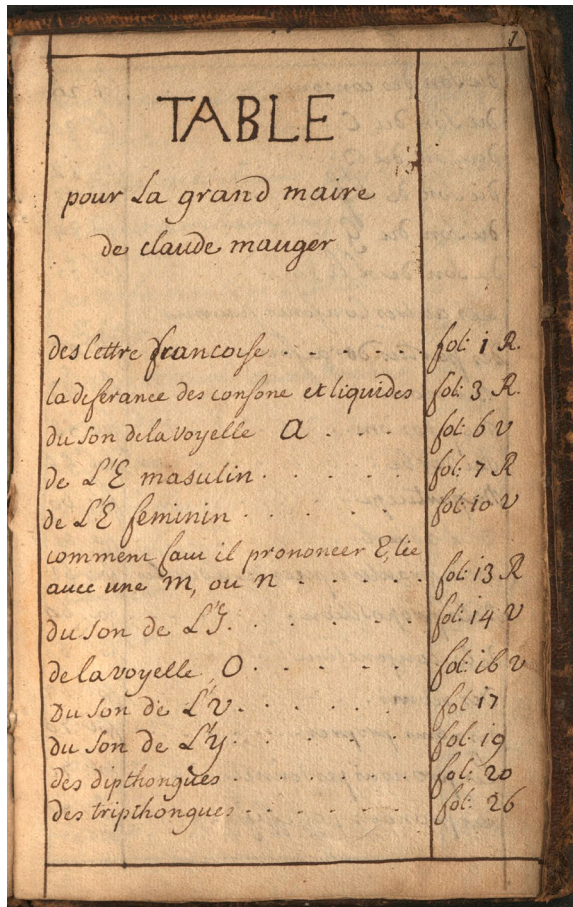 1
TABLE
pour La grand maire
de claude mauger
des lettre francoise . . . . fol: 1 R.
la deferance des consone et liquides fol: 3 R.
du son de la voyelle a . . . . fol: 6 v
de L'E masulin . . . . . fol: 7 R
de L'E feminin . . . . . fol: 10 v
comment faut il prononcer E, liée
avec une m, ou n . . . . fol: 13 R
du son de L'J . . . . . fol: 14 v
de la voyelle, O . . . . . fol: 16 v
Du son de L'v . . . . . fol 17
du son de L'y . . . . . fol: 19
des dipthongues . . . . fol: 20
des tripthongues . . . . . fol: 26